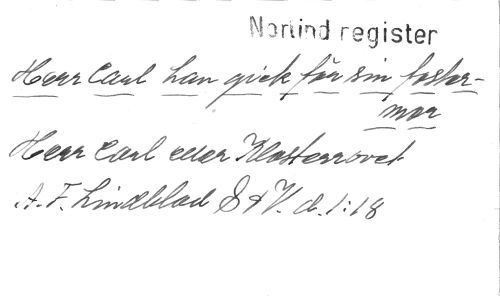 Norlind register
Herr Carl han gick för sin foster-
mor
Herr Carl eller Klosterrovet
A. F. Lindblad S & V. d. 1:18